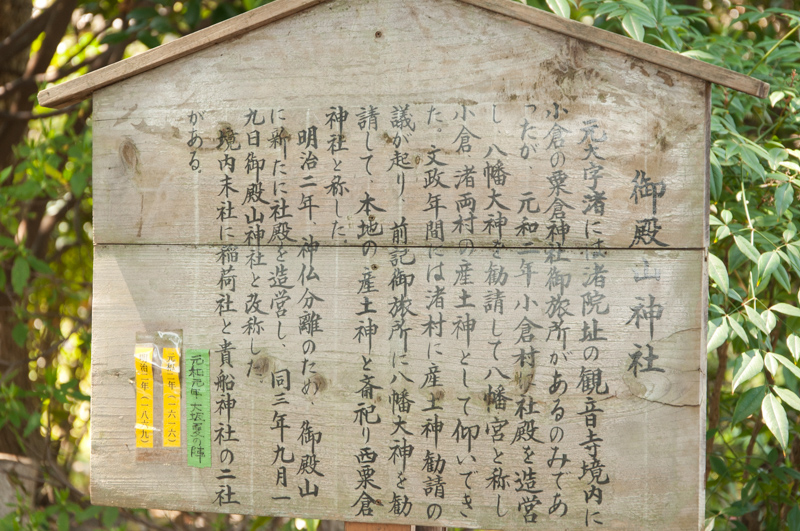 御殿山神社
元大字渚には渚院址の観音寺境内に
小倉の粟倉神社御旅所があるのみであ
ったが 元和二年小倉村に社殿を造営
し、八幡大神を勧請して八幡宮と称し
小倉、渚両村の産土神として仰いでき
た。文政年間には渚村に産土神勧請の
議が起り、前記御旅所に八幡大神を勧
請して、本地の産土神と斎祀り西粟倉
神社と称した。
明治二年、神仏分離のため、御殿山
に新たに社殿を造営し、同三年九月一
九日御殿山神社と改称した。
境内末社に稲荷社と貴船神社の二社
がある。
元和元年 大坂夏の陣
元和二年(一六一六)
明治二年(一八六九)